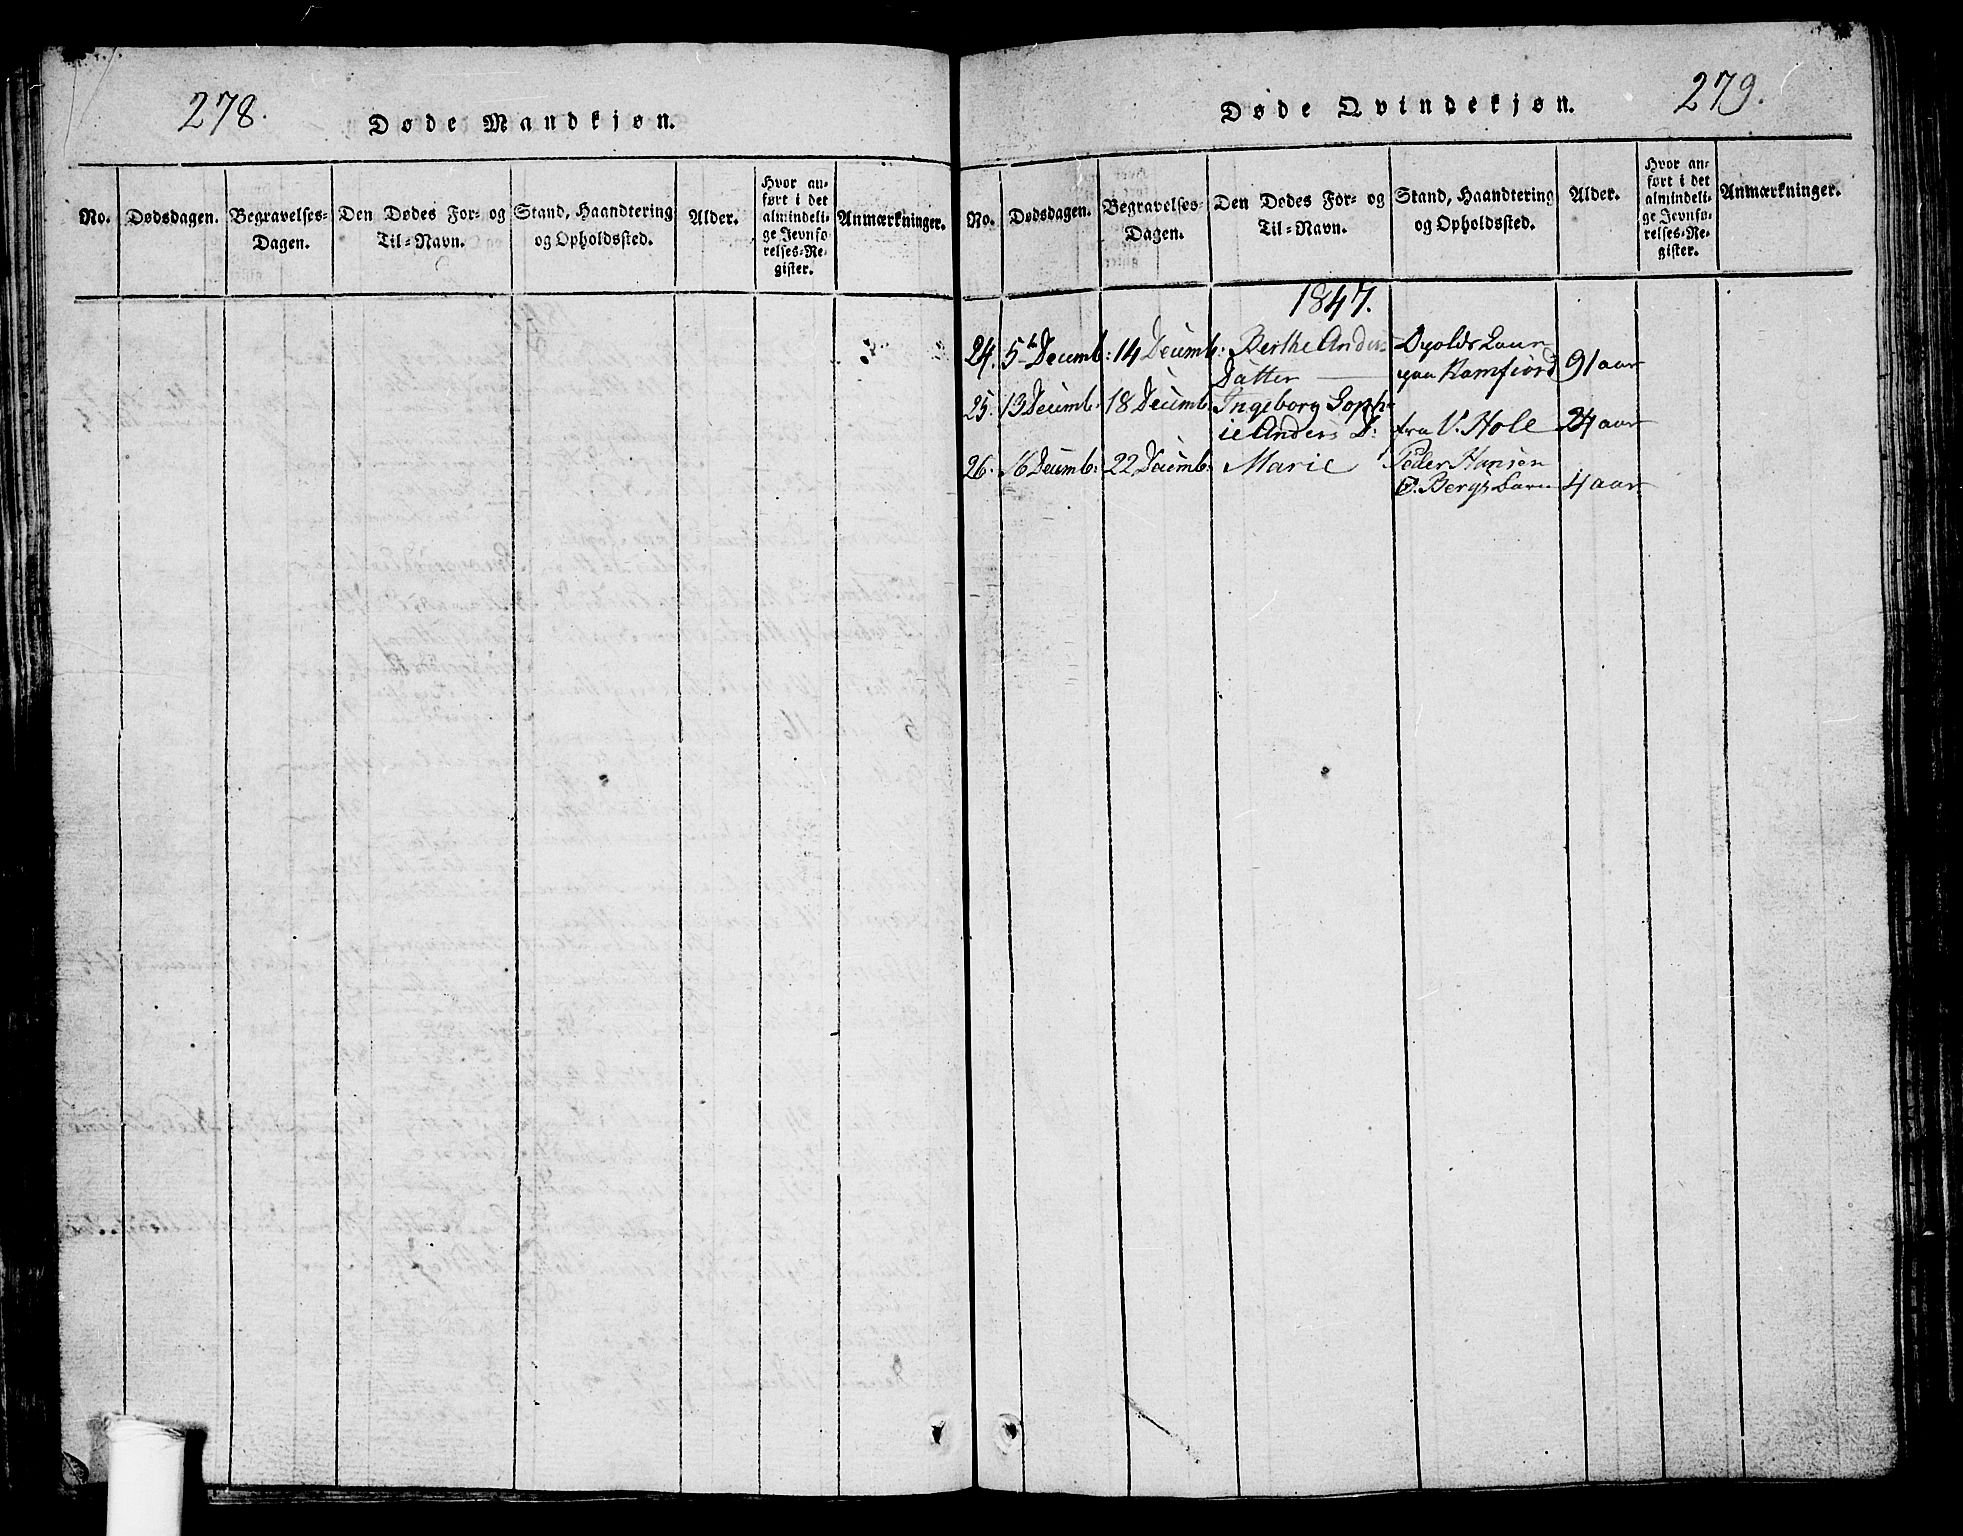 278.
Døde Mandkjøn.
No.
Dødsdagen.
Begravelses-
Dagen.
Den Dødes For- og
Til-Navn.
Stand, Haandtering
og Opholdssted.
Alder.
Hvor an-
ført i det
almindeli-
ge Jevnfø-
relses-Re-
gister.
Anmærkninger.
Døde Qvindekjøn.
279.
No.
Dødsdagen.
Begravelses-
Dagen.
Den Dødes For- og
Til-Navn.
Stand, Haandtering
og Opholdssted.
Alder.
Hvor an-
ført i det
almindeli-
ge Jevnfø-
relses-Re-
gister.
Anmærkninger.
1847.
24. 5te Decemb: 14 Decemb: Berthe Anders
Datter 91 aar
25. 13 Decemb. 18 Decemb: Ingeborg Soph-
ie Anders D: fra V. Hole 24 aar
26. 16 Decemb: 22 Decemb: Marie Peder Hansen
4 aar